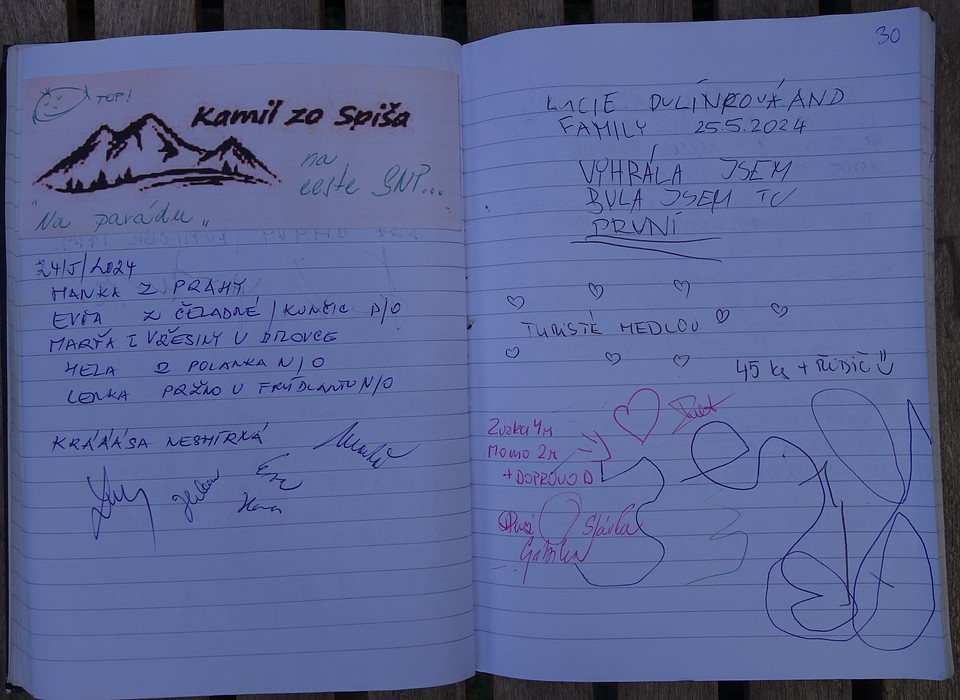 TOP!
Kamil zo Spiša
na
ceste SNP...
"Na parádu"
24/5/2024
HANKA Z PRAHY
EVČA Z ČELADNÉ / KUNČIC P/O
MARŤA Z VŘESINY U BÍLOVCE
HELA Z POLANKA N/O
LENKA PRŽNO U FRÝDLANTU N/O
KRÁÁÁSA NESMÍRNÁ
Hana
30
LUCIE DULÍNKOVÁ AND
FAMILY 25.5.2024
VYHRÁLA JSEM
BYLA JSEM TU
PRVNÍ
TURISTÉ MEDLOV
45 ks + ŘIDIČ
Zuzka 4m
Momo 2m
+ DOPROVOD
Slávka